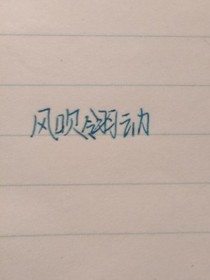 风吹翎动